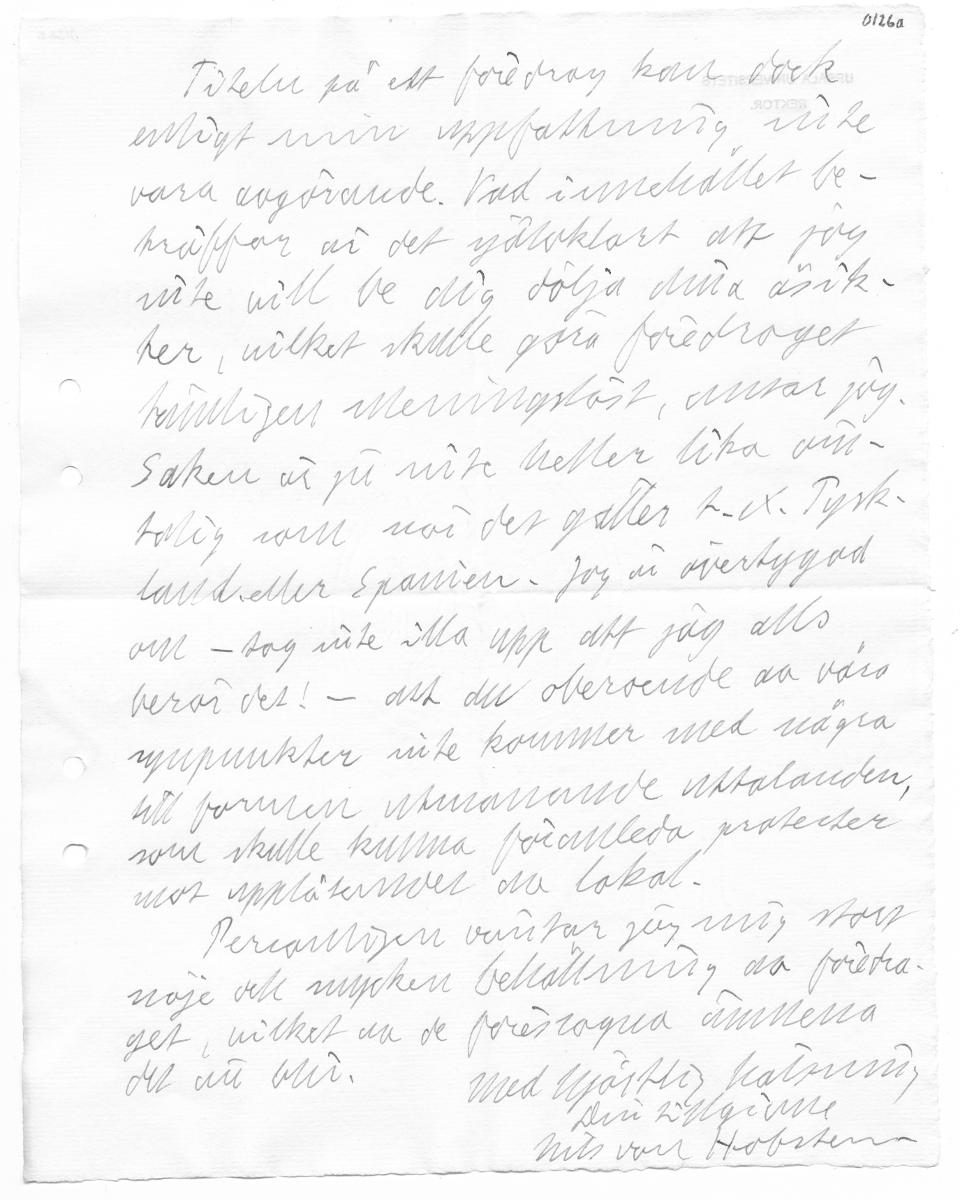 0126a
Titeln på ett föredrag kan dock
enligt min uppfattning inte
vara avgörande. Vad innehållet be-
träffar är det självklart att jag
inte vill be dig dölja dina åsik-
ter, vilket skulle göra föredraget
tämligen meningslöst, antar jag.
Saken är ju inte heller lika öm-
tålig som när det gäller t.ex. Tysk-
land eller Spanien. Jag är övertygad
om – tag inte illa upp att jag alls
berör det! – att du oberoende av våra
synpunkter inte kommer med några
till formen utmanande uttalanden,
som skulle kunna föranleda protester
mot upplåtandet av lokal.
Personligen väntar jag mig stort
nöje och mycken behållning av föredra-
get, vilket av de föreslagna ämnena
det än blir.
Med hjärtlig hälsning
Din tillgivne
Nils von Hofsten